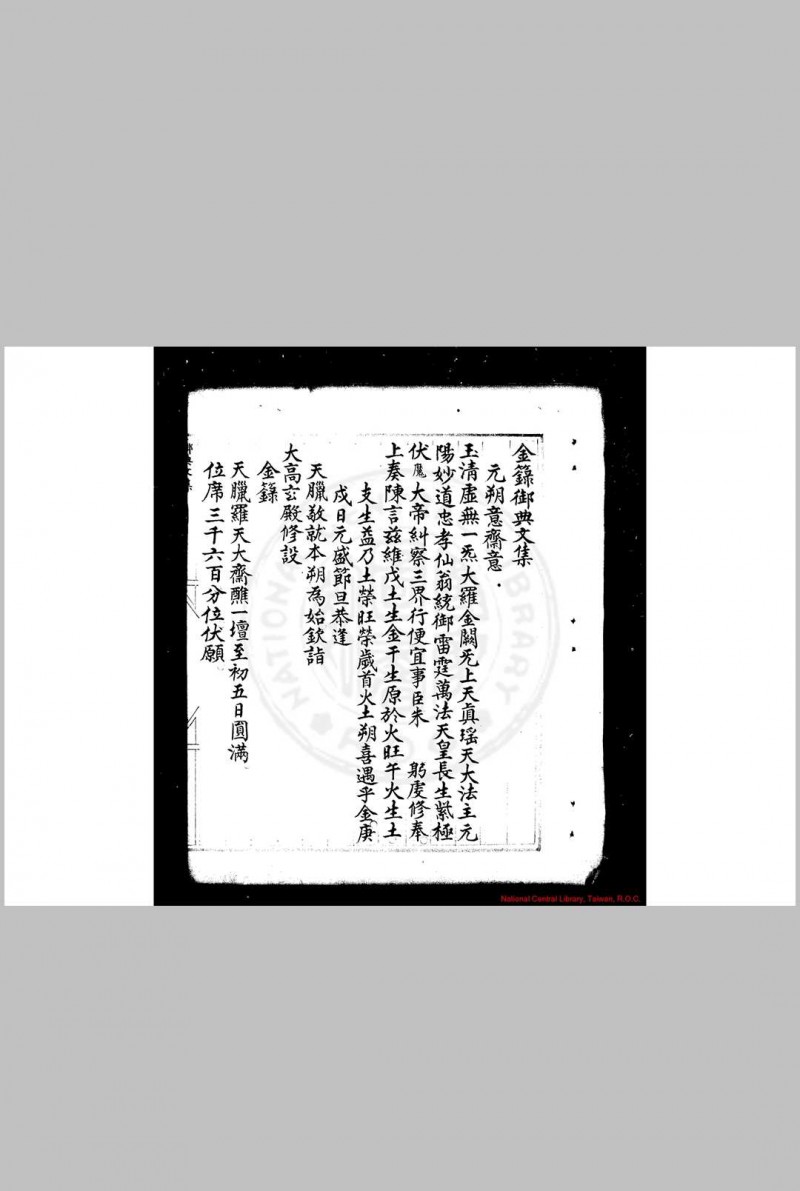 金籙御典文集
元朔意齋意
玉清虛無一炁大羅金闕旡上天真瑶天大法主元
陽妙道忠孝仙翁統御雷霆萬法天皇長生紫極
伏魔大帝糾察三界行便宜事臣朱 躬虔修奉
上奏陳言茲維戊土生金干生原於火旺午火生土
支生益乃土榮旺榮歲首火土朔喜遇乎金庚
戌日元盛節旦恭逢
天臘敬就本朔為始欽詣
大高玄殿修設
金籙
天臘羅天大齋醮一壇至初五日圓滿
位席三千六百分位伏願
NATIONAL
LIBRARY
National Central Library, Taiwan, R.O.C.